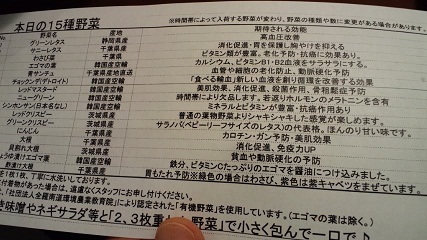 本日の15種野菜
※時間帯によって入荷する野菜が変わり、野菜の種類や数に変更がある場合があります。
野菜名 産地 期待される効能
グリーンレタス 静岡県産 高血圧改善
サニーレタス 千葉県産 消化促進・胃を保護し胸やけを抑える
わさび菜 千葉県産 ビタミン類が豊富。老化予防、抗癌作用あり
エゴマの葉 韓国産空輸 カルシウム、ビタミンB1・B2血液をサラサラにする。
青サンチュ 千葉県産地直送 血管や細胞の老化防止、動脈硬化予防
チョッケシ(デトロイト) 韓国産空輸 「食べる輸血」新しい血液を創り循環を改善する効果
レッドマスタード 韓国産空輸 美肌効果、消化促進、殺菌作用、骨粗鬆症予防
ニューグリーン 韓国産空輸 時間帯により欠品します。若返りホルモンのメラトニンを含有
シンホンサン(日本名なし) 韓国産空輸 ミネラルとビタミンが豊富・抗癌作用あり
レッドクリスピー 茨城県産 普通の葉物野菜よりシャキシャキした感覚が楽しめます。
グリーンクリスピー 茨城県産 サラノバ(ベビーリーフサイズのレタス)の代表格。ほんのり甘い味です。
にんじん 千葉県産 カロテン・ガン予防・美肌効果
大根 千葉県産 消化促進、免疫力UP
貝割れ大根 茨城県産 貧血や動脈硬化の予防
しょうゆ漬けエゴマ葉 韓国産空輸 鉄分、ビタミンCたっぷりのエゴマを醤油につけ込みました。
酢漬け大根 千葉県産 胃もたれ予防※緑色の場合はわさび、紫色は紫キャベツをまぜています。
を1枚1枚、丁寧に水洗いしております。
付着物があった場合は、遠慮なくスタッフにお申し付けください。
により認定された「有機野菜」を使用しています。(エゴマの葉は除く。)
味噌やネギサラダ等と「2、3枚重
野菜」で小さく包んで一口で♪